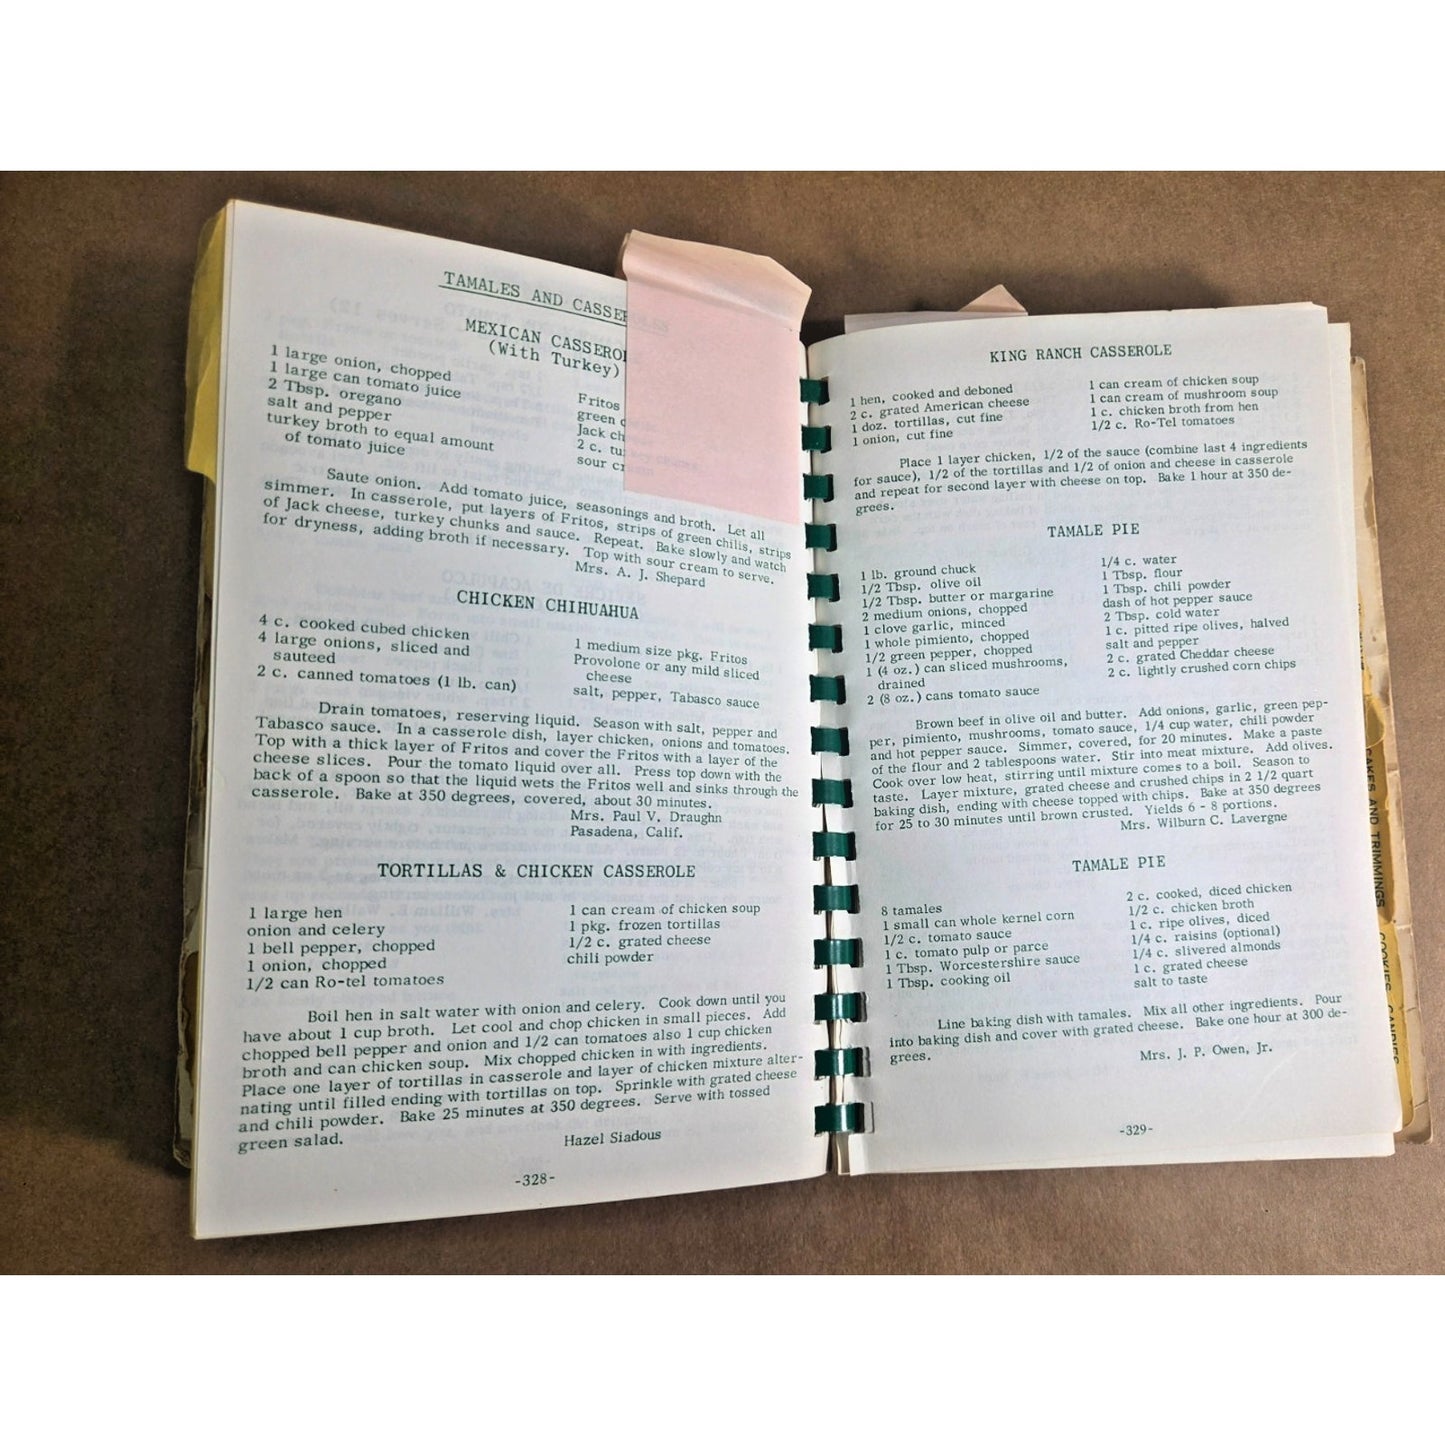 TAMALES AND CASSEROLES
MEXICAN CASSEROL
(With Turkey)
1 large onion, chopped
1 large can tomato juice
2 Tbsp. oregano
salt and pepper
turkey broth to equal amount
of tomato juice
Fritos
green
Jack ch
2 c. tu
sour cr
Saute onion. Add tomato juice, seasonings and broth. Let all
simmer. In casserole, put layers of Fritos, strips of green chilis, strips
of Jack cheese, turkey chunks and sauce. Repeat. Bake slowly and watch
for dryness, adding broth if necessary. Top with sour cream to serve.
Mrs. A. J. Shepard
CHICKEN CHIHUAHUA
4 c. cooked cubed chicken
4 large onions, sliced and
sauteed
2 c. canned tomatoes (1 lb. can)
1 medium size pkg. Fritos
Provolone or any mild sliced
cheese
salt, pepper, Tabasco sauce
Drain tomatoes, reserving liquid. Season with salt, pepper and
Tabasco sauce. In a casserole dish, layer chicken, onions and tomatoes.
Top with a thick layer of Fritos and cover the Fritos with a layer of the
cheese slices. Pour the tomato liquid over all. Press top down with the
back of a spoon so that the liquid wets the Fritos well and sinks through the
casserole. Bake at 350 degrees, covered, about 30 minutes.
Mrs. Paul V. Draughn
Pasadena, Calif.
TORTILLAS & CHICKEN CASSEROLE
1 large hen
onion and celery
1 bell pepper, chopped
1 onion, chopped
1/2 can Ro-tel tomatoes
1 can cream of chicken soup
1 pkg. frozen tortillas
1/2 c. grated cheese
chili powder
Boil hen in salt water with onion and celery. Cook down until you
have about 1 cup broth. Let cool and chop chicken in small pieces. Add
chopped bell pepper and onion and 1/2 can tomatoes also 1 cup chicken
broth and can chicken soup. Mix chopped chicken in with ingredients.
Place one layer of tortillas in casserole and layer of chicken mixture alter-
nating until filled ending with tortillas on top. Sprinkle with grated cheese
and chili powder. Bake 25 minutes at 350 degrees. Serve with tossed
green salad.
Hazel Siadous
-328-
KING RANCH CASSEROLE
1 hen, cooked and deboned
2 c. grated American cheese
1 doz. tortillas, cut fine
1 onion, cut fine
1 can cream of chicken soup
1 can cream of mushroom soup
1 c. chicken broth from hen
1/2 c. Ro-Tel tomatoes
Place 1 layer chicken, 1/2 of the sauce (combine last 4 ingredients
for sauce), 1/2 of the tortillas and 1/2 of onion and cheese in casserole
and repeat for second layer with cheese on top. Bake 1 hour at 350 de-
grees.
TAMALE PIE
1 lb. ground chuck
1/2 Tbsp. olive oil
1/2 Tbsp. butter or margarine
2 medium onions, chopped
1 clove garlic, minced
1 whole pimiento, chopped
1/2 green pepper, chopped
1 (4 oz.) can sliced mushrooms,
drained
2 (8 oz.) cans tomato sauce
1/4 c. water
1 Tbsp. flour
1 Tbsp. chili powder
dash of hot pepper sauce
2 Tbsp. cold water
1 c. pitted ripe olives, halved
salt and pepper
2 c. grated Cheddar cheese
2 c. lightly crushed corn chips
Brown beef in olive oil and butter. Add onions, garlic, green pep-
per, pimiento, mushrooms, tomato sauce, 1/4 cup water, chili powder
and hot pepper sauce. Simmer, covered, for 20 minutes. Make a paste
of the flour and 2 tablespoons water. Stir into meat mixture. Add olives.
Cook over low heat, stirring until mixture comes to a boil. Season to
taste. Layer mixture, grated cheese and crushed chips in 2 1/2 quart
baking dish, ending with cheese topped with chips. Bake at 350 degrees
for 25 to 30 minutes until brown crusted. Yields 6 - 8 portions.
Mrs. Wilburn C. Lavergne
TAMALE PIE
8 tamales
1 small can whole kernel corn
1/2 c. tomato sauce
1 c. tomato pulp or parce
1 Tbsp. Worcestershire sauce
1 Tbsp. cooking oil
2 c. cooked, diced chicken
1/2 c. chicken broth
1 c. ripe olives, diced
1/4 c. raisins (optional)
1/4 c. slivered almonds
1 c. grated cheese
salt to taste
Line baking dish with tamales. Mix all other ingredients. Pour
into baking dish and cover with grated cheese. Bake one hour at 300 de-
grees.
Mrs. J. P. Owen, Jr.
-329-
CAKES AND TRIMMINGS
COOKIES, CANDIES